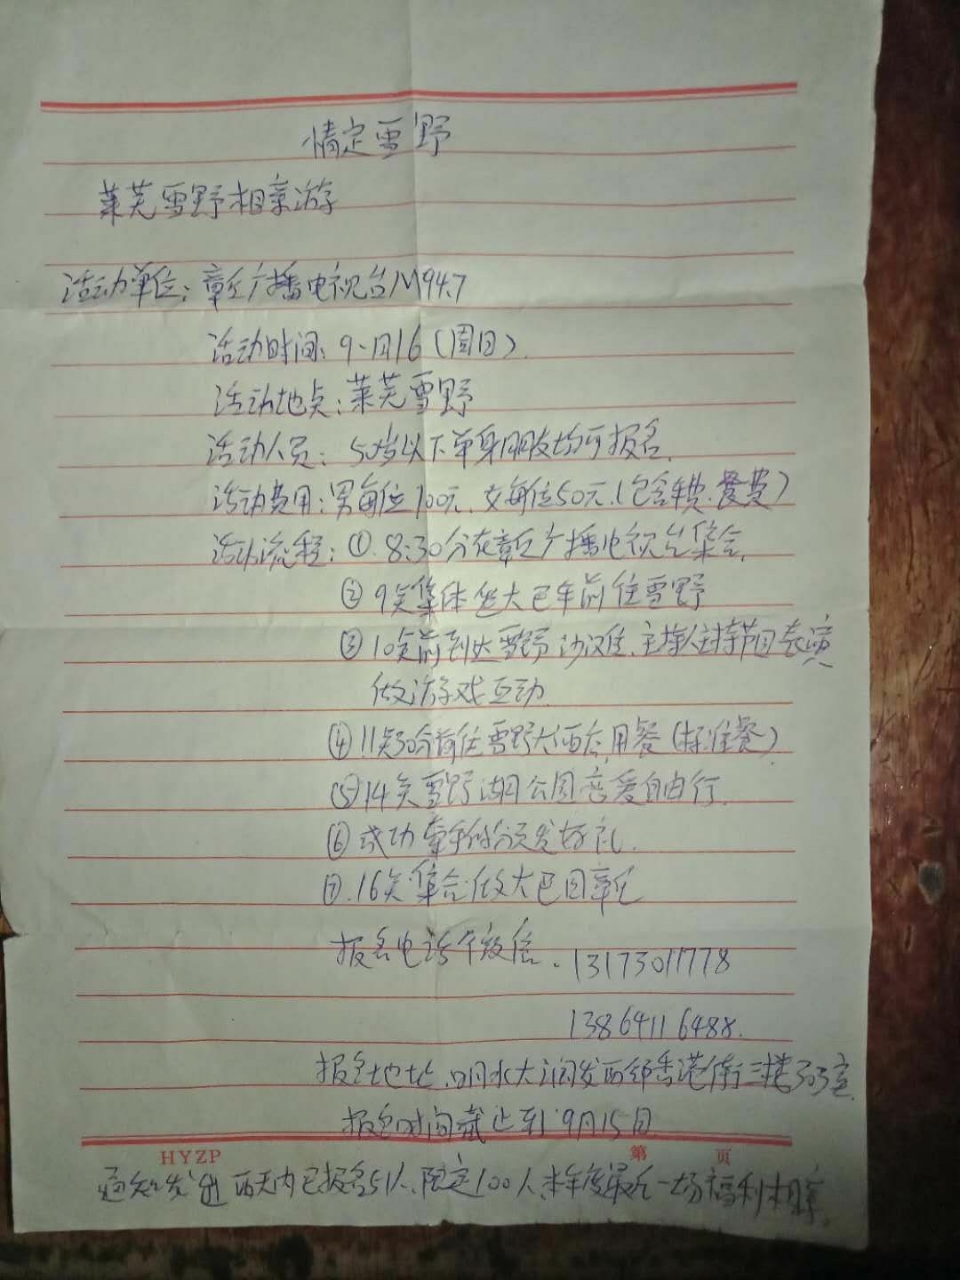 情定雪野
莱芜雪野相亲游
活动单位：章丘广播电视台M94.7
活动时间：9月16（周日）
活动地点：莱芜雪野
活动人员：50岁以下单身朋友均可报名.
活动费用：男每位100元.女每位50元.(包含车费.餐费)
活动流程：①.8:30分在章丘广播电视台集合.
②9点集体坐大巴车前往雪野
③10点前到达雪野沙滩.主持人主持节目表演
做游戏互动
④11点30分前往雪野大酒店用餐(标准餐)
⑤14点雪野湖公园恋爱自由行.
⑥成功牵手的颁发好礼.
⑦.16点集合做大巴回章丘
报名电话微信.13173011778
13864116488.
报名地址.明水大润发西邻香港街三楼303室
报名时间截止到9月15日
HYZP 第 页
通知发出两天内已报名51人.限定100人.本年度最后一场福利相亲.